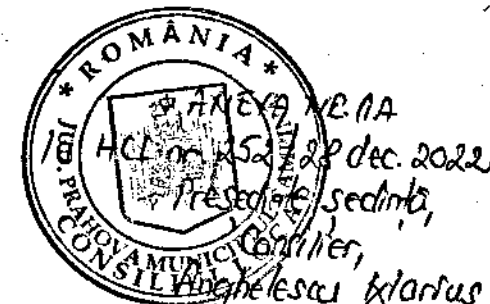 * ROMÂNIA *
JUD. PRAHOVA MUNICI
CONSILI
ANEXA NR. 1A
HCL nr 252 / 28 dec. 2022
Președinte ședință,
Consilier,
Anghelescu Marius